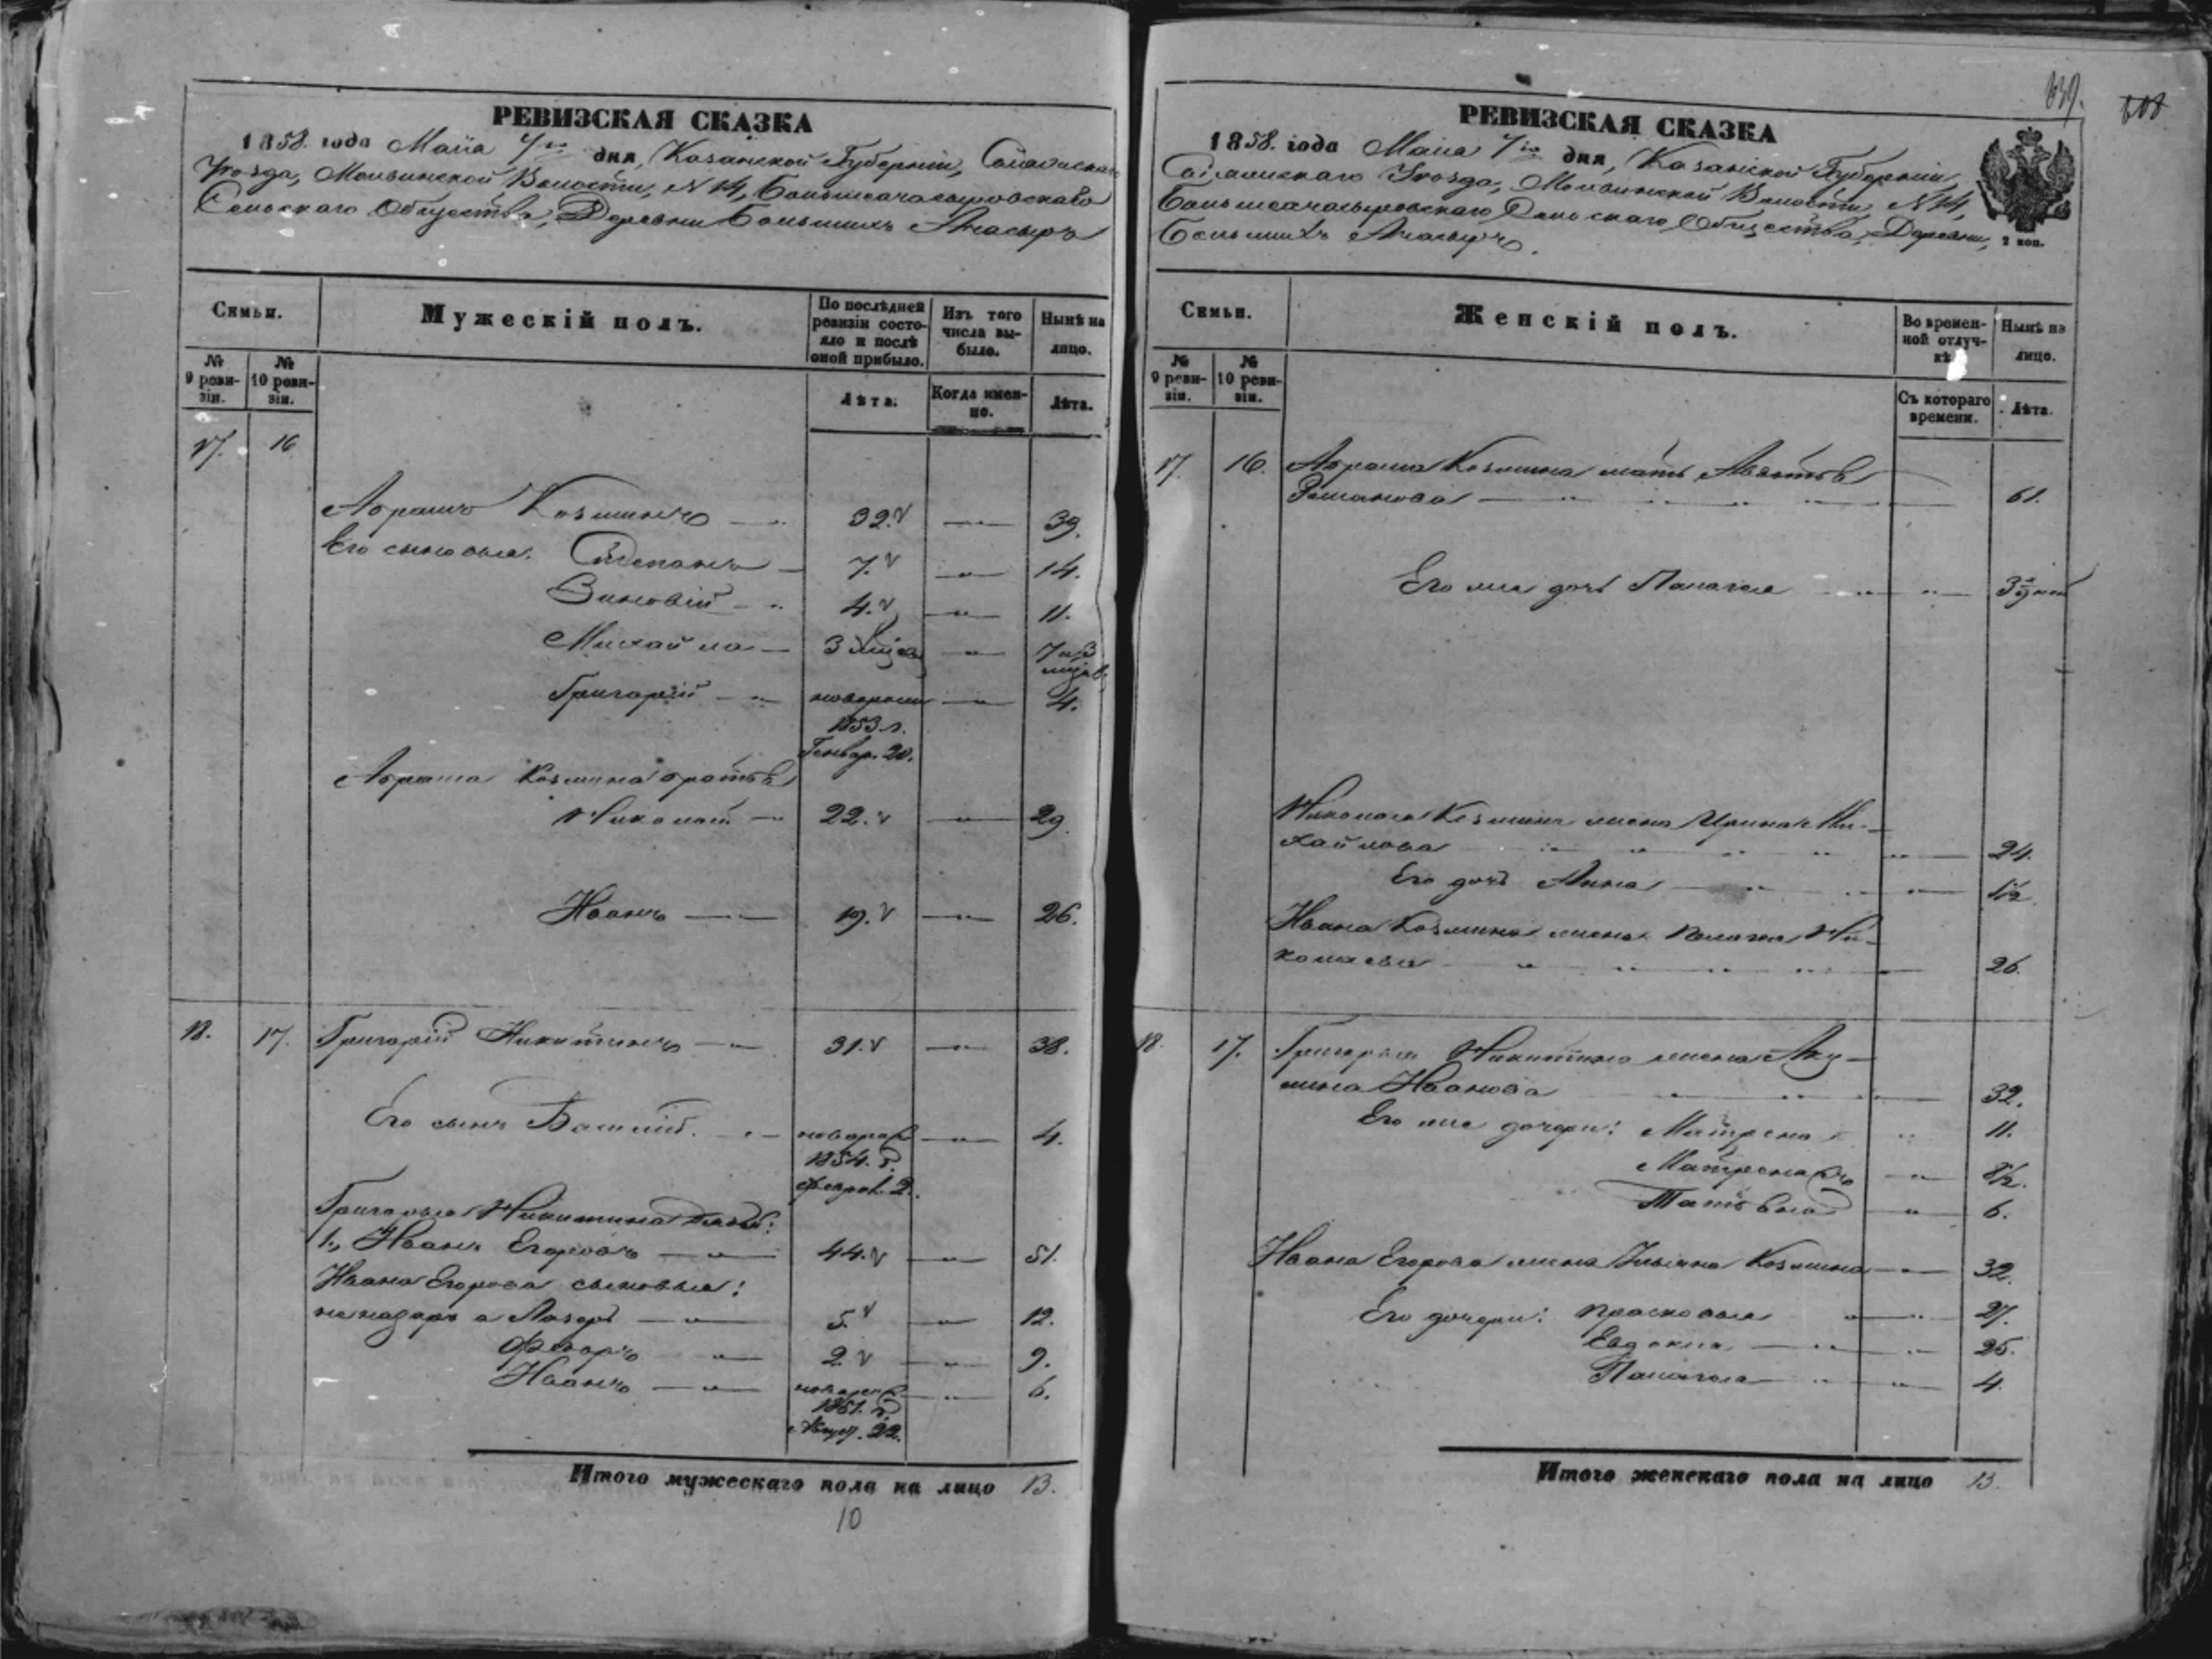 РЕВИЗСКАЯ СКАЗКА
1858. года Маія 7го дня, Казанской Губерніи,
Уѣзда, Волости, № 14, Большеачасырскаго
Сельскаго Общества, Деревни Большихъ Ачасыръ
Семьи.
Мужескій полъ.
По послѣдней ревизіи состояло и послѣ оной прибыло.
Изъ того числа выбыло.
Нынѣ на лицо.
№ 9 ревизіи.
№ 10 ревизіи.
Лѣта.
Когда именно.
Лѣта.
17. 16
Абрамъ Козминъ 32. 39.
Его сыновья. Степанъ 7. 14.
Зиновій 4. 11.
Михайла 3 7 и 3
Григорій 4.
1853 г.
Генвар. 20.
Абрама Козмина братья
Николай 22. 29.
Иванъ 19. 26.
18. 17. Григорій Никитинъ 31. 38.
Его сынъ Василій. новорож 4.
1854. г.
Феврал. 2.
Григорья Никитина дядья:
1., Иванъ Егоровъ 44. 51.
Ивана Егорова сыновья:
не назаръ а Лазарь 5. 12.
Федоръ 2. 9.
Иванъ новорож 6.
1851. г.
Август. 22.
Итого мужескаго пола на лицо 13.
10
639.
РЕВИЗСКАЯ СКАЗКА
1858. года Маія 7го дня, Казанской Губерніи,
Уѣзда, Волости, № 14,
Большеачасырскаго Сельскаго Общества, Деревни,
Большихъ Ачасыръ.
2 коп.
Семьи.
Женскій полъ.
Во временной отлучкѣ
Нынѣ на лицо.
№ 9 ревизіи.
№ 10 ревизіи.
Съ котораго времени.
Лѣта.
17. 16. Абрама Козмина мать Авдотья
Романова 61.
Его же дочь Палагея 3
Николая Козмина жена Ирина Ми-
хайлова 24.
Его дочь Анна 1½
Ивана Козмина жена Палагея Ни-
колаева 26.
18. 17. Григорья Никитина жена Аку-
лина Иванова 32.
Его же дочери: Матрена 11.
Матрена 8½.
Татьяна 6.
Ивана Егорова жена Ульяна Козмина 32.
Его дочери: Прасковья 27.
Евдокия 25.
Палагея 4.
Итого женскаго пола на лицо 13.